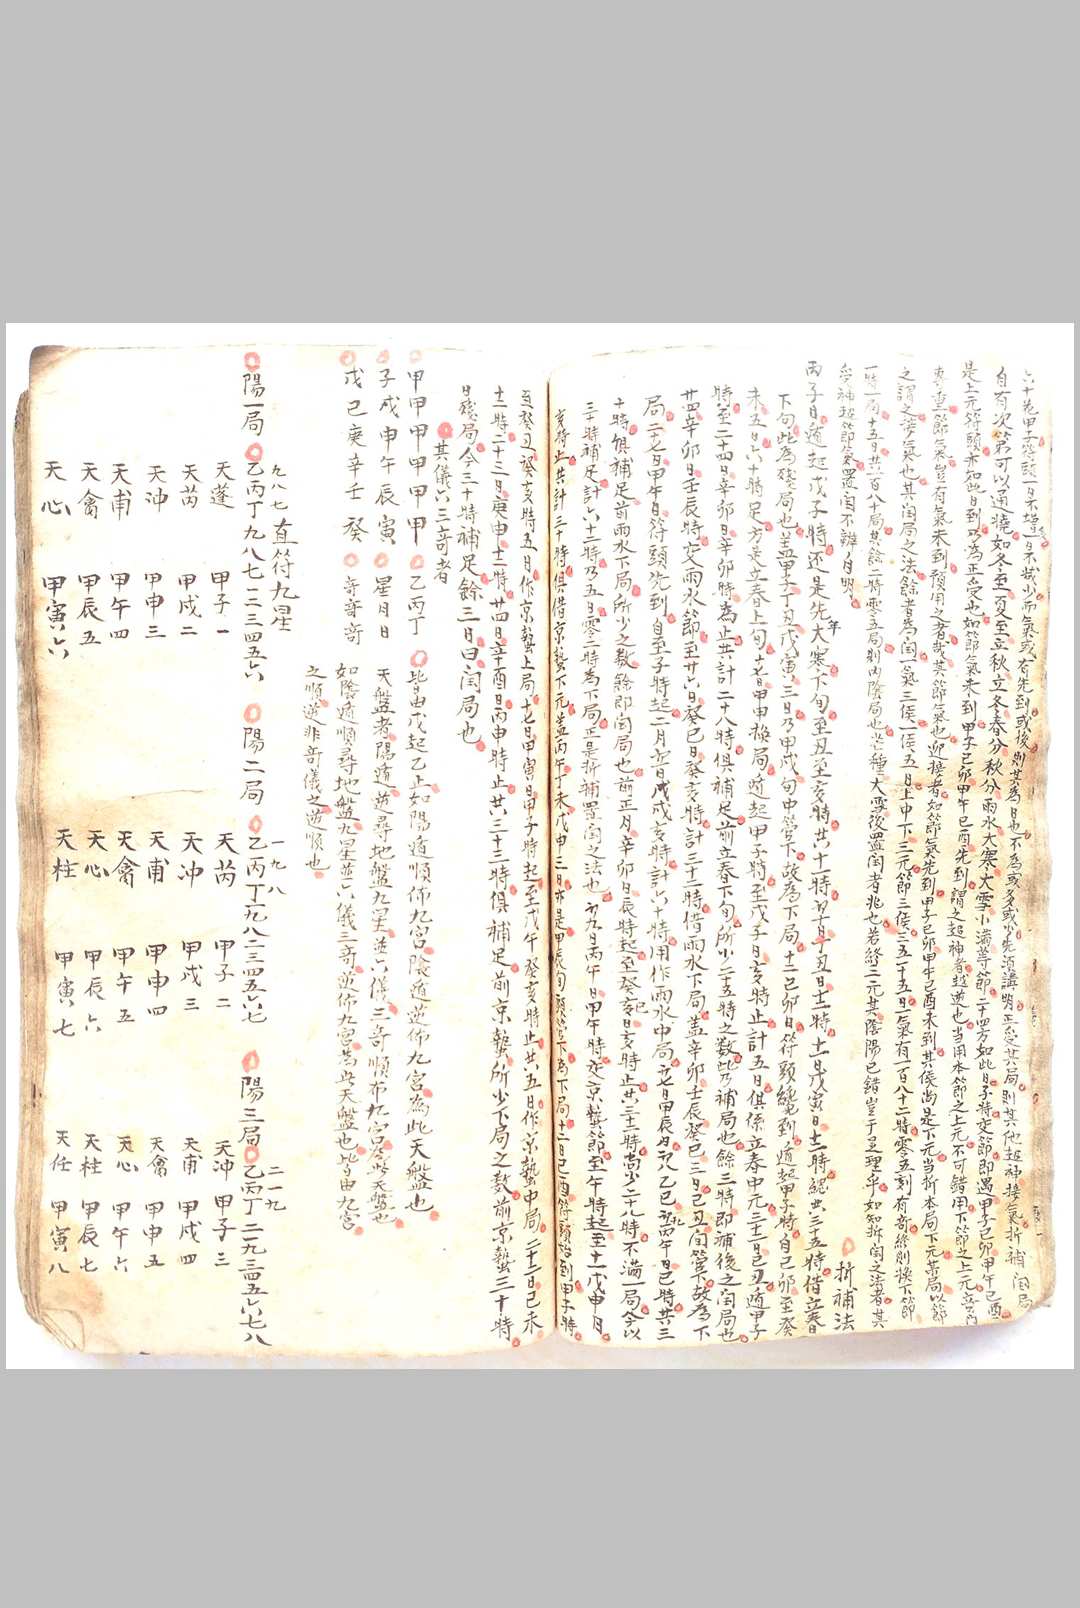 六十花甲子符頭一日不增一日不減少而氣或有先到或後則其為日也不為或多或少先須講明正受其局則其他超神接氣折補閏局
自有次第可以通曉如冬至夏至立秋立冬春分秋分雨水大寒大雪小滿等節二十四方如此日子時交節即遇甲子己卯甲午己酉
是上元符頭亦如此日到此為正受也如節氣未到甲子己卯甲午己酉先到謂之超神者越過也當用本節之上元不可錯用下節之上元
專重節氣豈有氣未到預用之者哉其節氣也迎接者如節氣先到甲子己卯甲午己酉未到其侯尚是下元當折本局下元某局以節
之謂之接氣也其閏局之法餘者為閏一氣三侯一侯五日上中下三元節三侯三五十五日一氣有一百八十二時零五刻有奇終則換下節
一時一百十五日共一百八十局其餘二時零五局則內陰局也芒種大雪後置閏者兆也若終三元其陰陽已錯豈于是理乎如知折閏之清者其
受神超節氣置閏不辨自明
折補法
丙子日遁起戊子時還是先年大寒下旬至丑至亥時共十一時初十日丁丑日十二時十一日戊寅日十二時總共三十五時借立春
下旬此為殘局也蓋甲子丁丑戊寅三日乃甲戌旬中管下故為下局十二己卯日符頭纔到遁起甲子時自己卯至癸
未五日六十時足方是立春上旬十七日甲申換局遁起甲子時至戊子日亥時止計五日俱係立春中元二十二日己丑遁甲子
時至二十四日辛卯日辛卯時為止共計二十八時俱補足前立春下旬所少二十五時之數此乃補局也餘三時即補後之閏局也
廿四辛卯日壬辰時交雨水節至廿六日癸巳日癸亥時計三十二時借雨水下局蓋辛卯壬辰癸巳三日己丑閏管下故為下
局二十七日甲午日符頭先到自至子時起二月初一日戊戌亥時計六十時用作雨水中局初七日甲辰初八乙巳初九丙午日巳時共三
十時俱補足前雨水下局所少之數餘即閏局也前正月辛卯日辰時起至癸亥日亥時止共三十二時尚少二十八時不滿一局今以
三十時補足計六十二時乃五日零二時為下局正是折補置閏之法也初九日丙午日甲午時交京蟄節至午時起至十一戊申日
亥時止共計三十時俱借京蟄下元蓋丙午丁未戊申三日亦是甲辰旬頭管下為下局十二日己酉符頭始到甲子時
至癸丑癸亥時五日作京蟄上局十七日甲寅日甲子時起至戊午癸亥時止共五日作京蟄中局二十二日己未
十二時二十三日庚申十二時廿四日辛酉日丙申時止共三十三時俱補足前京蟄所少下局之數前京蟄三十時
日殘局今三十時補足餘三日曰閏局也
其儀六三奇者
甲甲甲甲甲甲 乙丙丁 皆由戊起乙止如陽遁順佈九宮陰遁逆佈九宮為此天盤也
子戌申午辰寅 星月日 天盤者陽遁逆尋地盤九星並六儀三奇順布九宮為此天盤也
戊己庚辛壬癸 奇奇奇 如陰遁順尋地盤九星並六儀三奇逆佈九宮為此天盤也皆由九宮
之順逆非奇儀之逆順也
九八七直符九星 一九八 二一九
陽一局 乙丙丁九八七一二三四五六 陽二局 乙丙丁一九八二三四五六七 陽三局 乙丙丁二一九三四五六七八
天蓬 甲子一 天芮 甲子二 天沖 甲子三
天芮 甲戌二 天沖 甲戌三 天甫 甲戌四
天沖 甲申三 天甫 甲申四 天禽 甲申五
天甫 甲午四 天禽 甲午五 天心 甲午六
天禽 甲辰五 天心 甲辰六 天柱 甲辰七
天心 甲寅六 天柱 甲寅七 天任 甲寅八